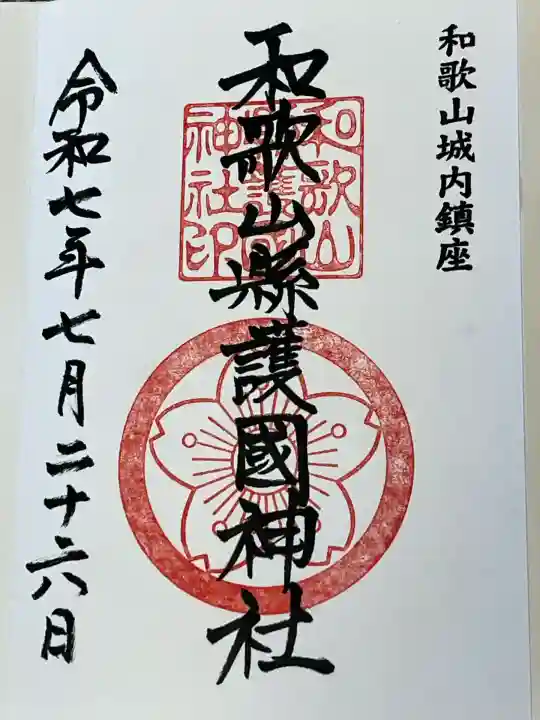 和歌山城内鎮座
和歌山縣護國神社
令和七年七月二十六日
和歌山
神社印